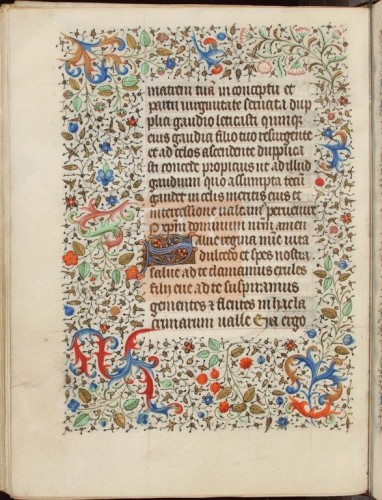 matrem tuā in conceptu et
partu virginitate servata dup
plia gaudio leticasti quinqe
eius gaudia filio tuo resurgente
et ad celos ascendente duplica
sti concede propicius ut ad illud
gaudium quo assumpta tecū
gaudet in celis meritis eius et
intercessione valeam' pervenire
P cpm dominum nrm amen
alue regina mīe vita
dulcedo et spes nostra
salue ad te clamamus exules
filii eue ad te suspiramus
gementes & flentes in hac la
crimarum valle Eya ergo